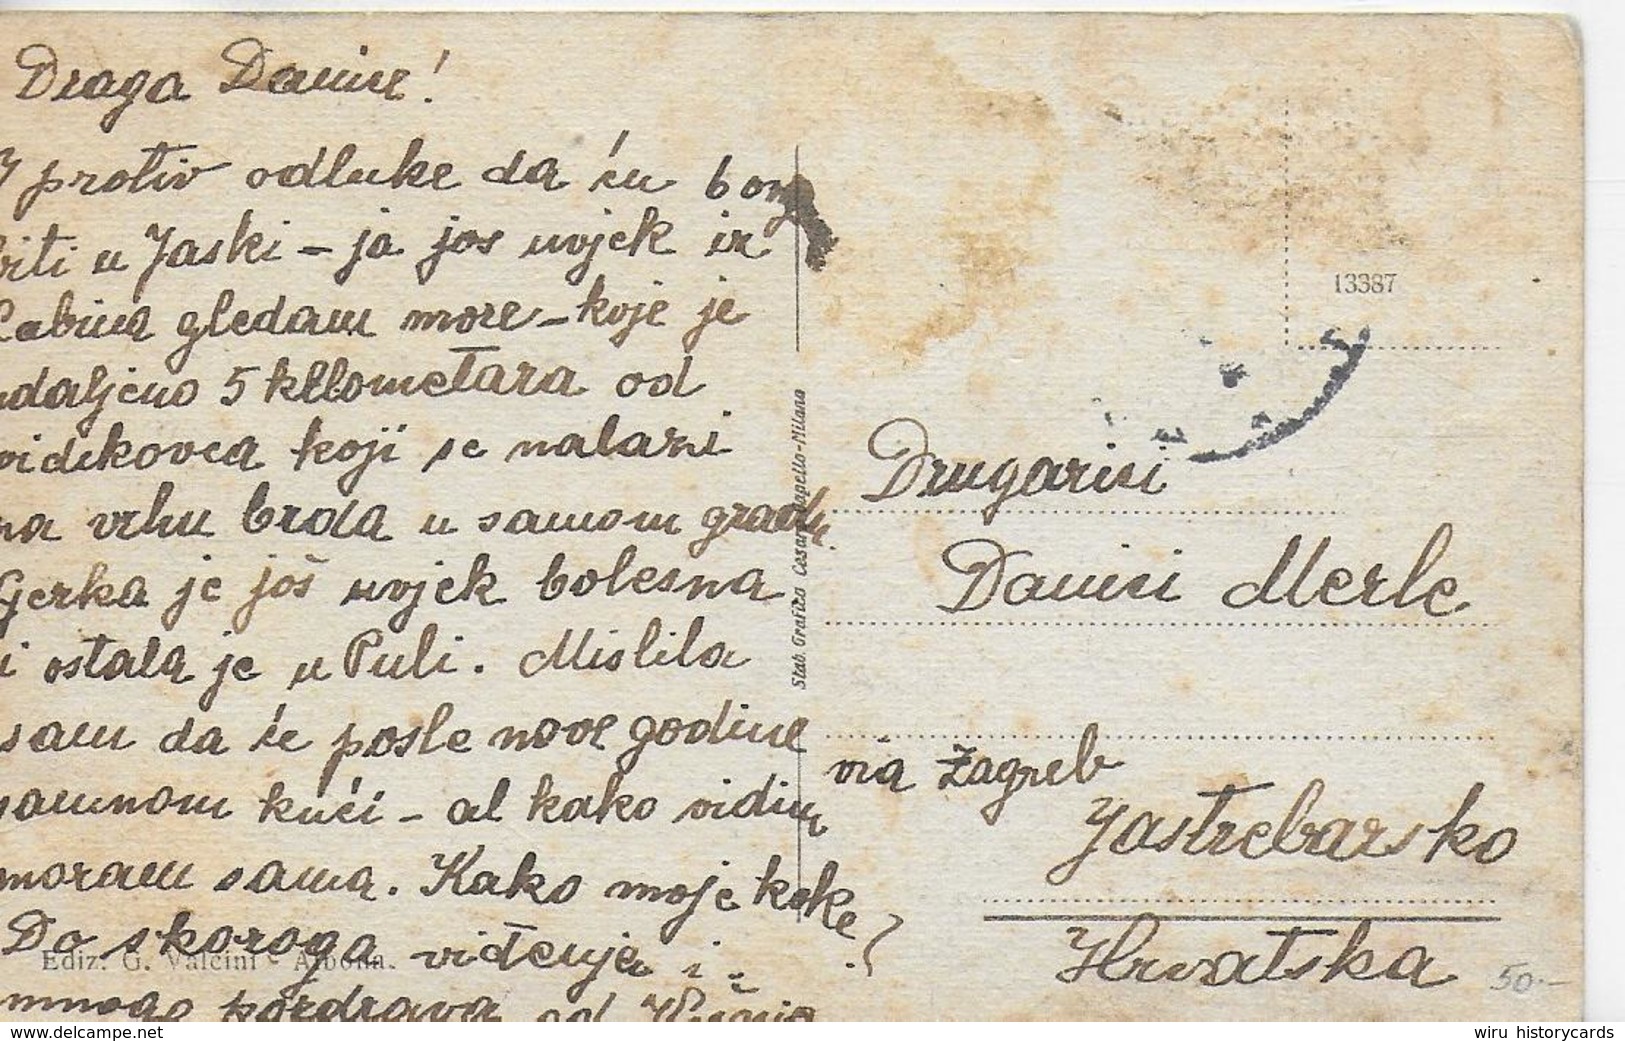 Draga Danire!
I protiv odluke da ću
biti u Jaski – ja jos uvjek iz
Labina gledam more – koje je
udaljeno 5 kilometara od
vidikovca koji se nalazi
na vrhu brda u samom gradu.
Ćerka je još uvjek bolesna
i ostala je u Puli. Mislila
sam da će posle nove godine
samnom kući – al kako vidim
moram sama. Kako moje koke?
Do skoroga viđenja i
mnogo pozdrava od
Ediz. G. Valcini - Albona.
Stab. Grafico Cesare Capello - Milano
13387
Drugarici
Danici Merle
via Zagreb
Jastrebarsko
Hrvatska
50.-
wiru historycards